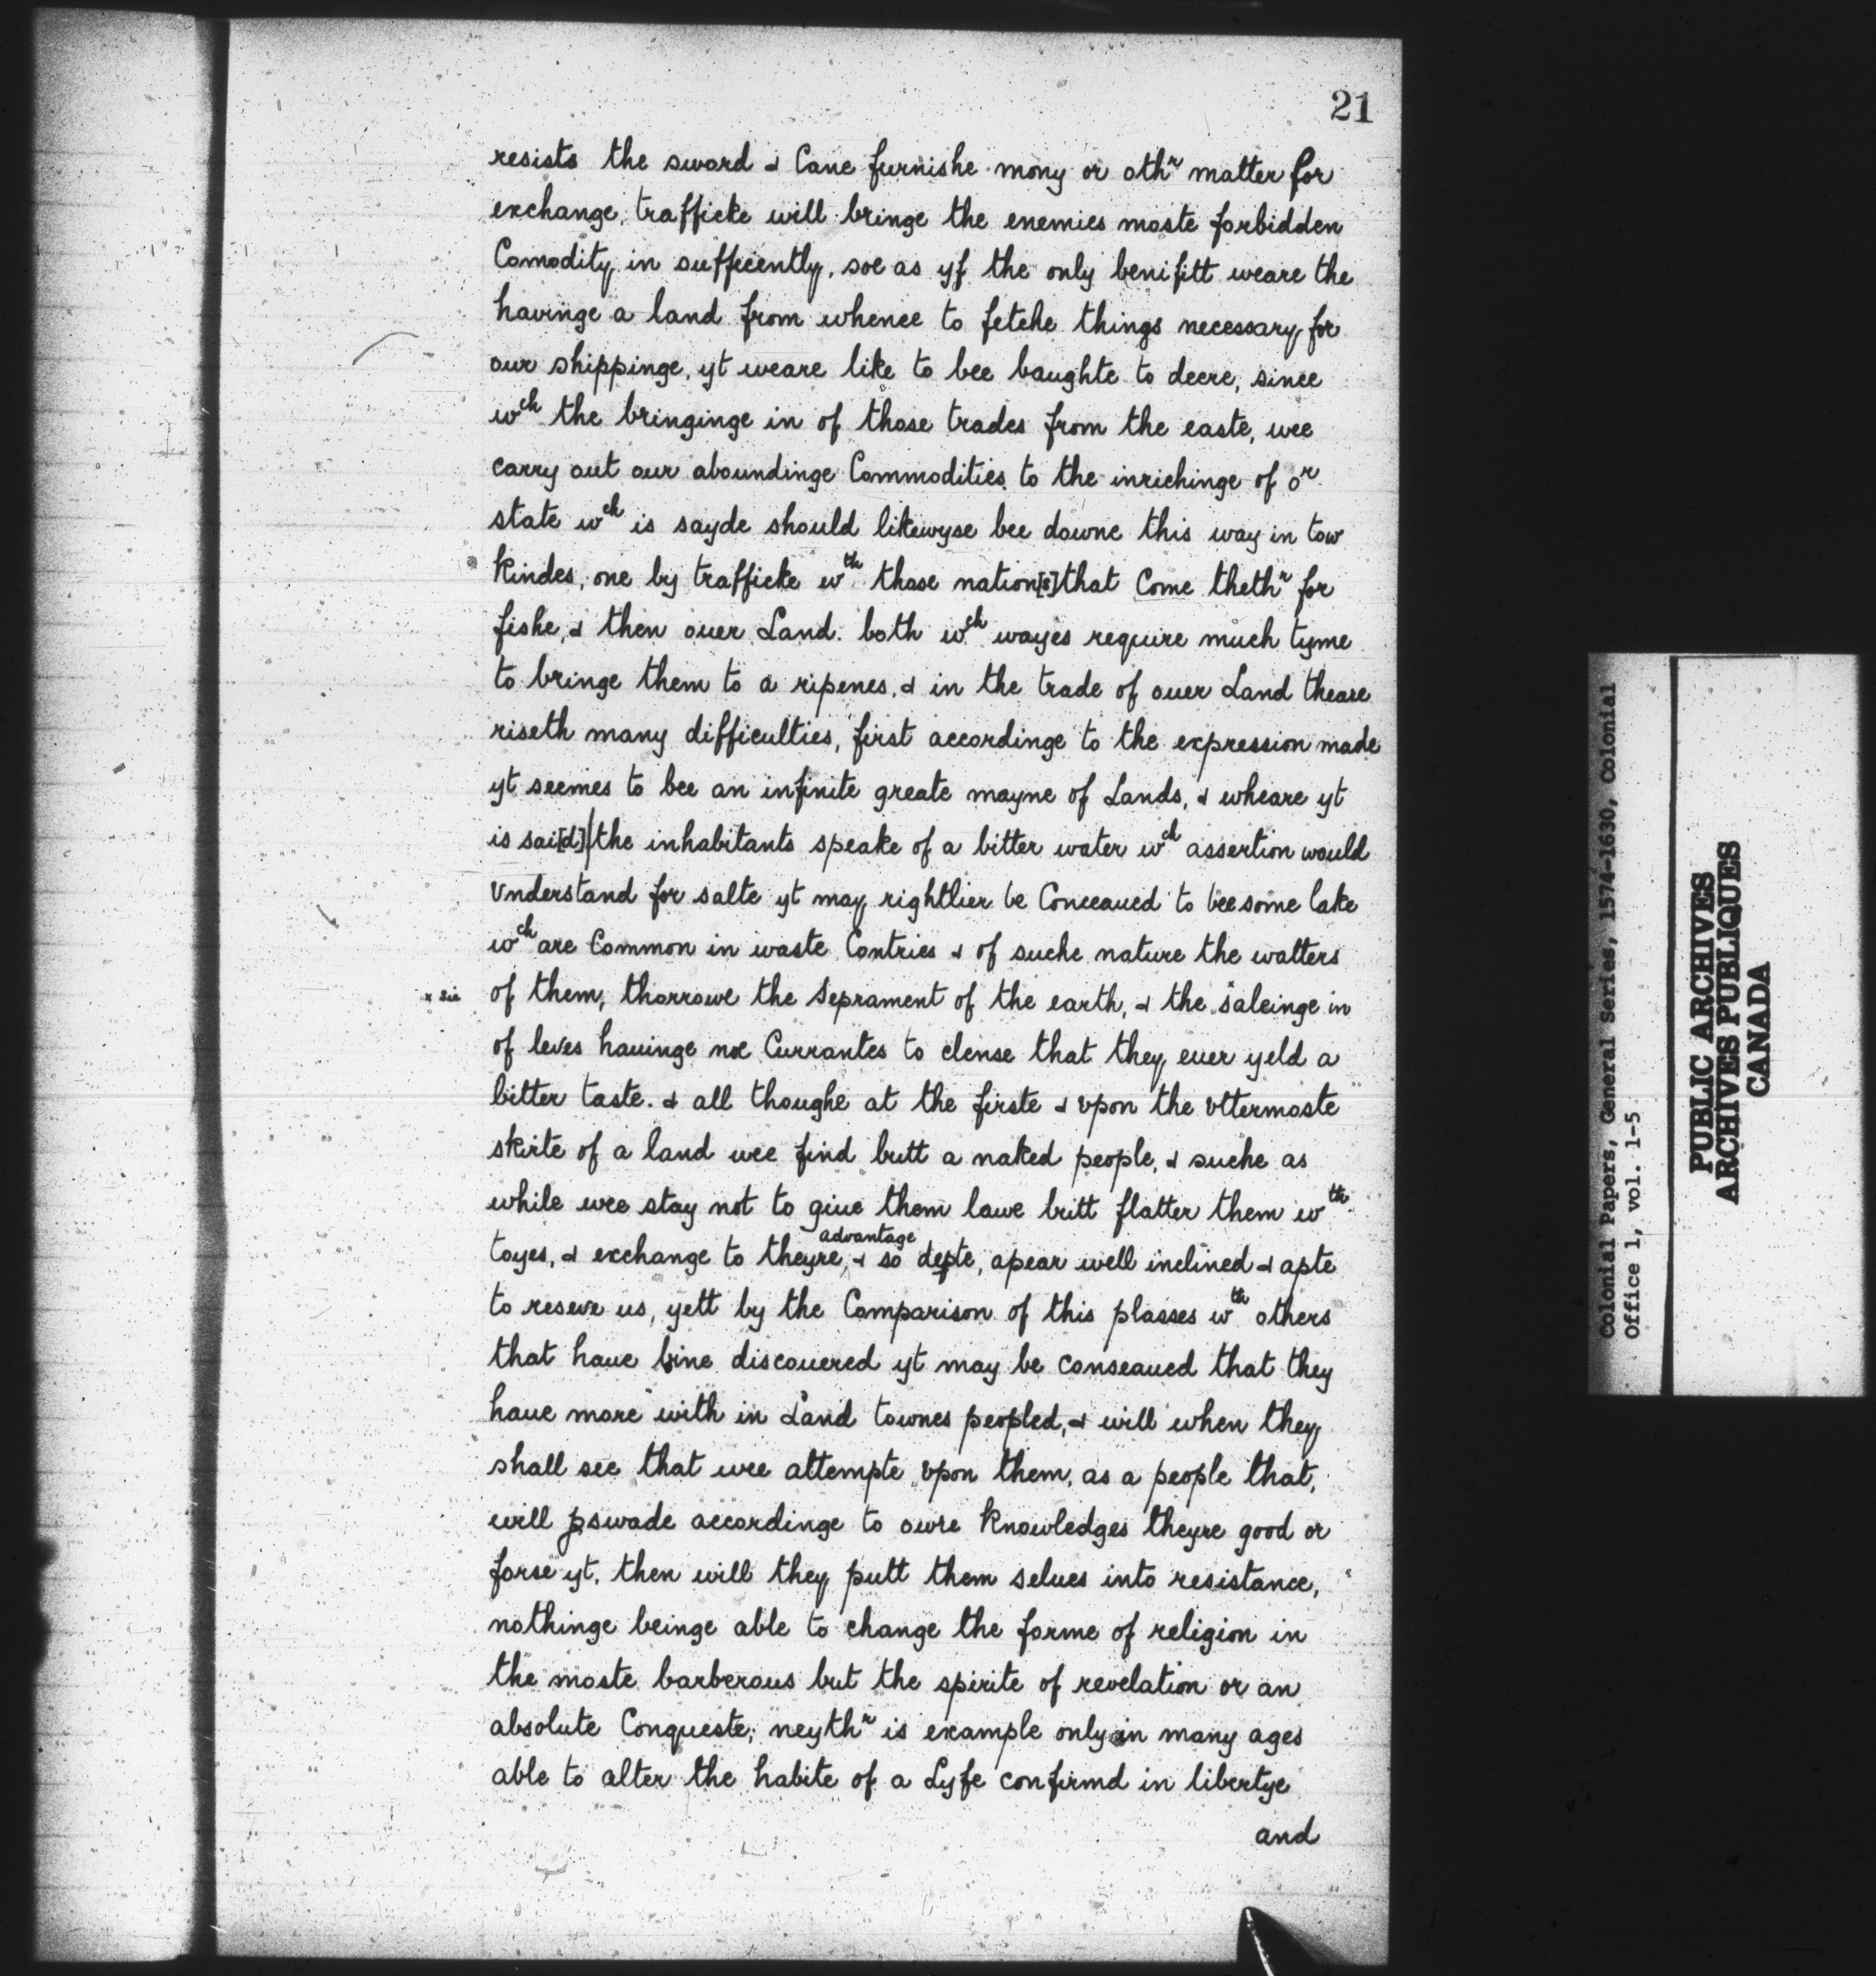 21
resists the sword & Cane furnishe mony or othʳ matter for
exchange, trafficke will bringe the enemies moste forbidden
Comodity in sufficently, soe as yf the only benifitt weare the
havinge a land from whence to fetche things necessary for
our shippinge, yt weare like to bee baughte to deere, since
wᶜʰ the bringinge in of those trades from the easte, wee
carry out our aboundinge Commodities to the inrichinge of oʳ
state wᶜʰ is sayde should likewyse bee downe this way in tow
kindes, one by trafficke wᵗʰ those nation[s] that Come thethʳ for
fishe, & then ouer Land. both wᶜʰ wayes require much tyme
to bringe them to a ripenes, & in the trade of ouer Land theare
riseth many difficulties, first accordinge to the expression made
yt seemes to bee an infinite greate mayne of Lands, & wheare yt
is sai[d] the inhabitants speake of a bitter water wᶜʰ assertion would
Vnderstand for salte yt may rightlier be Conceaued to bee some lake
wᶜʰ are Common in waste Contries & of suche nature the watters
x sic of them, thorrowe the Seprament of the earth, & the saleinge in
of leves hauinge noe Currantes to clense that they euer yeld a
bitter taste. & all thoughe at the firste & vpon the vttermoste
skirte of a land wee find butt a naked people, & suche as
while wee stay not to giue them lawe britt flatter them wᵗʰ
advantage
toyes, & exchange to theyre, & so depte, apear well inclined & apte
to reseve us, yett by the Comparison of this plasses wᵗʰ others
that haue bine discouered yt may be conseaued that they
haue more with in Land townes peopled, & will when they
shall see that wee attempte vpon them, as a people that,
will pswade accordinge to owre knowledges theyre good or
forse yt, then will they putt them selues into resistance,
nothinge beinge able to change the forme of religion in
the moste barberous but the spirite of revelation or an
absolute Conqueste; neythʳ is example only in many ages
able to alter the habite of a Lyfe confirmd in libertye
and
Colonial Papers, General Series, 1574-1630, Colonial
Office 1, vol. 1-5
PUBLIC ARCHIVES
ARCHIVES PUBLIQUES
CANADA